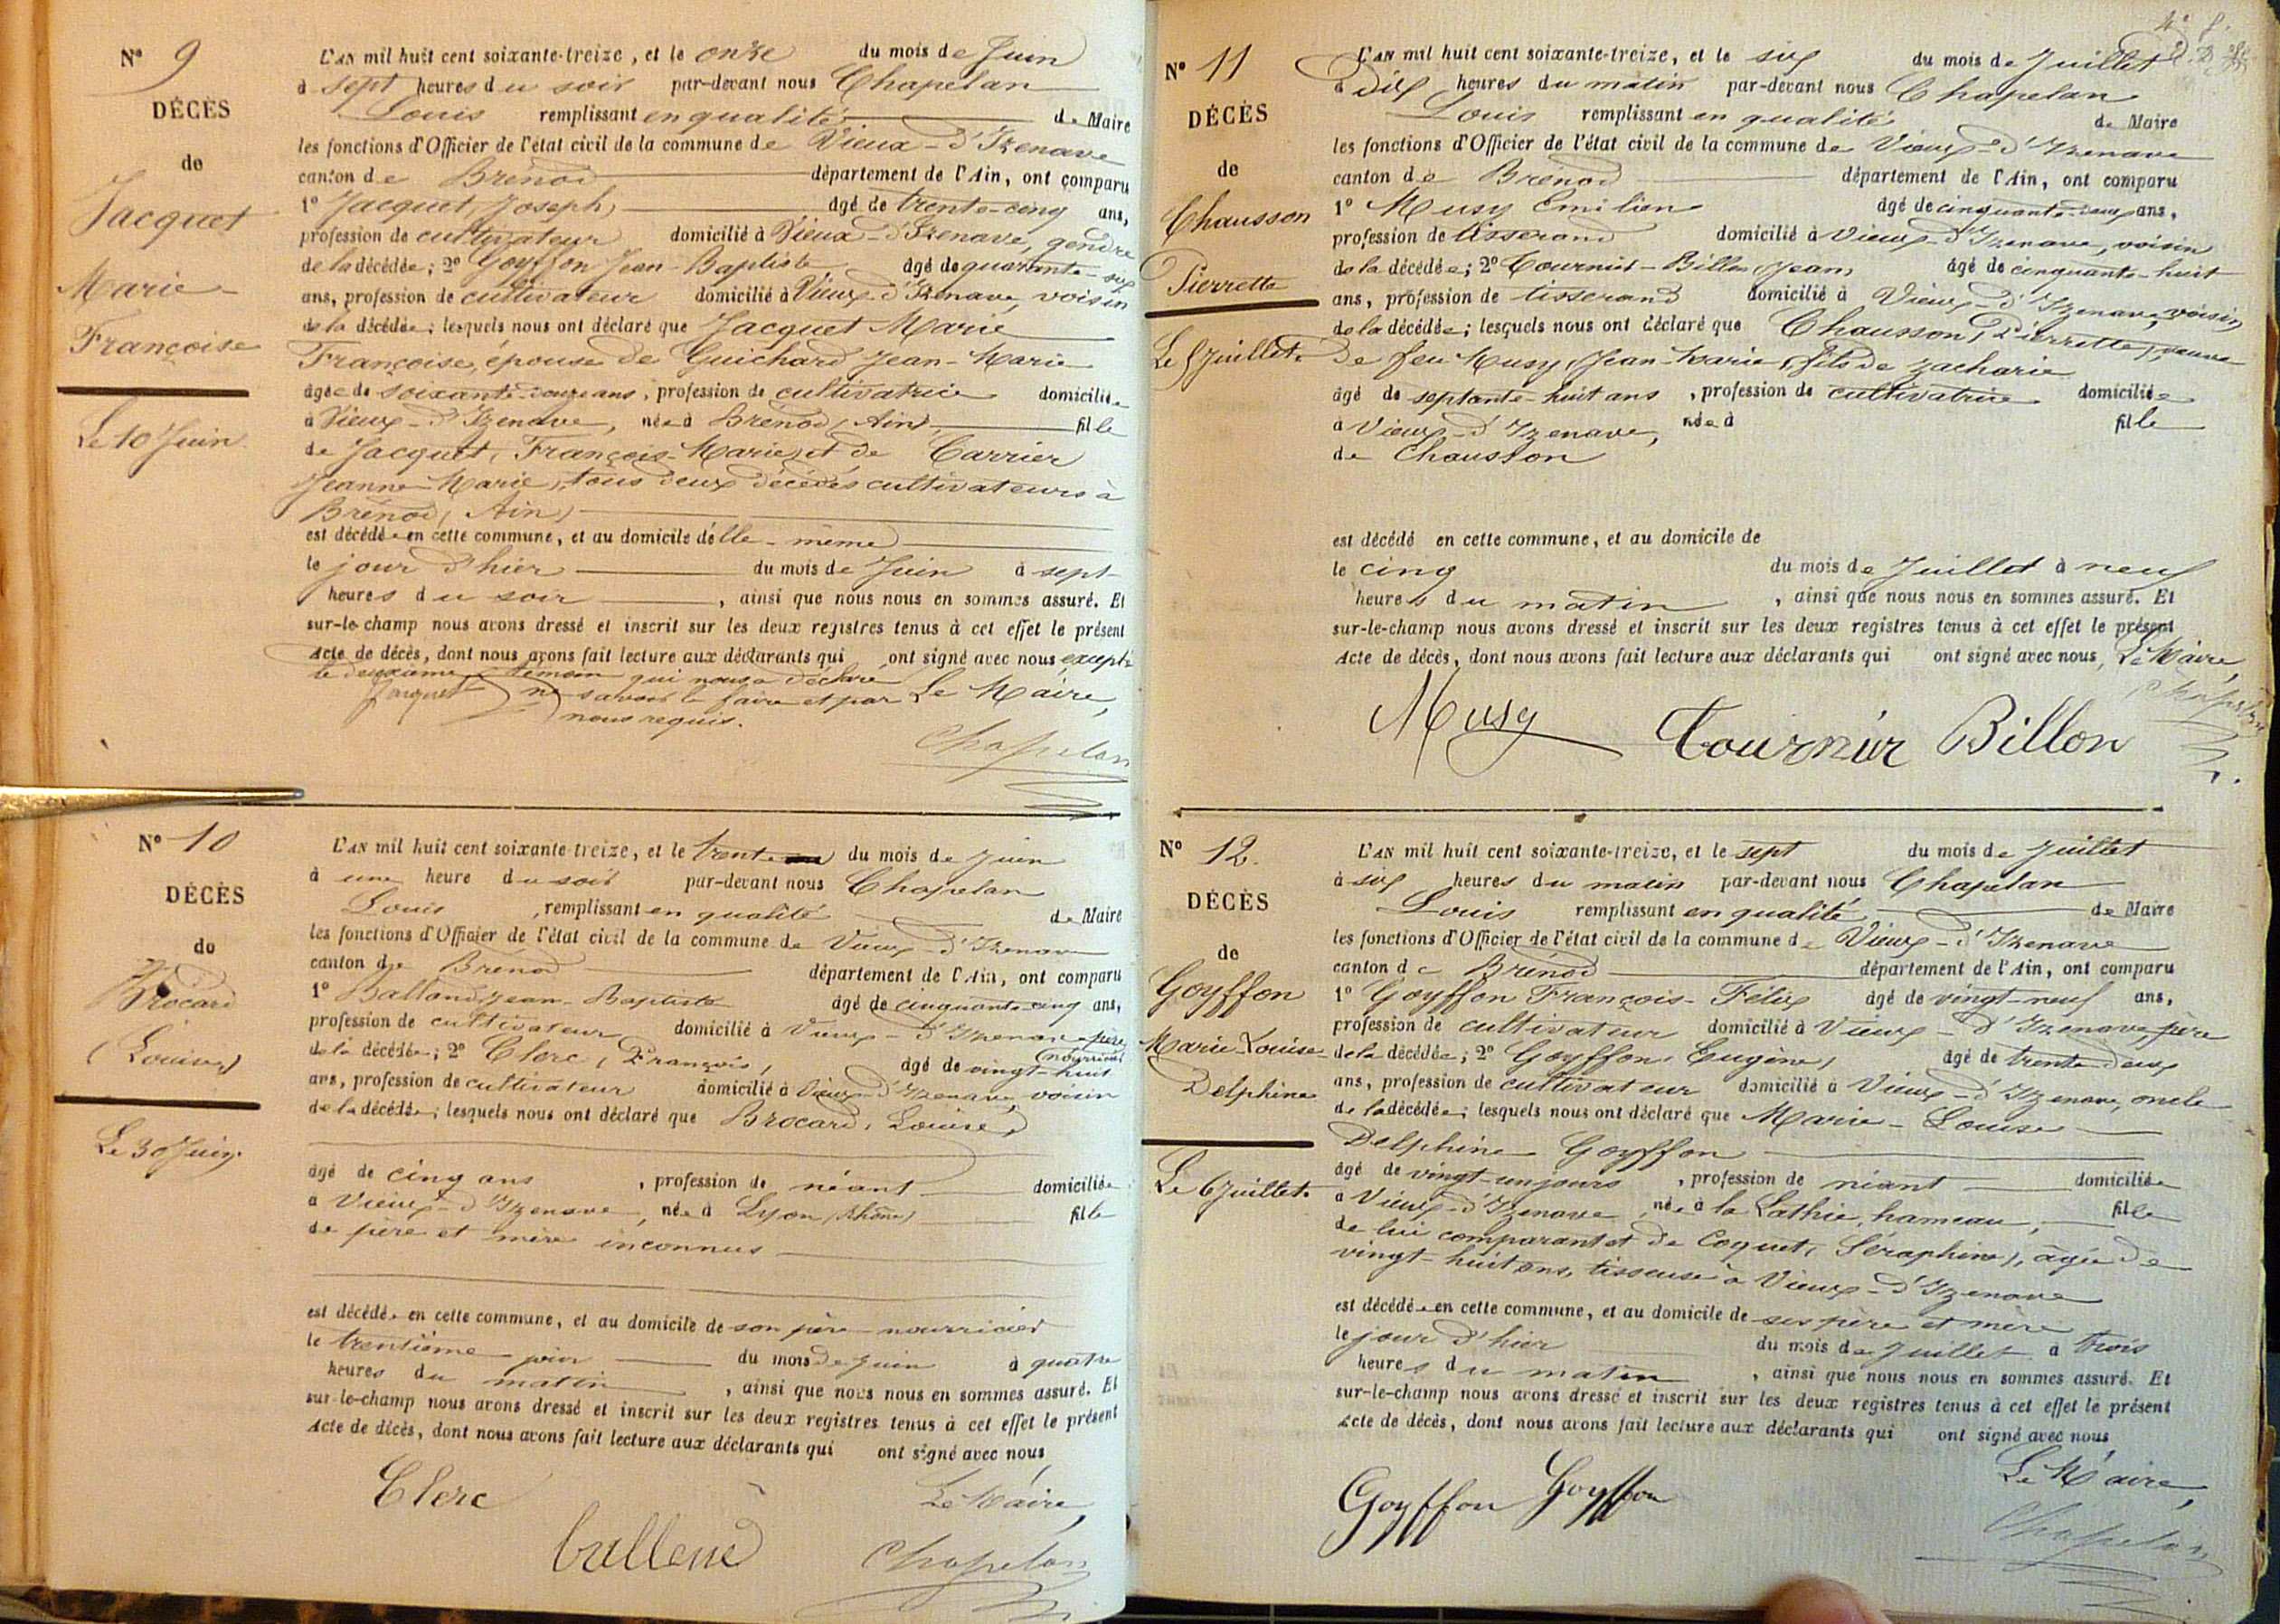 Nº 9
DÉCÈS
de
Jacquet
Marie-
Françoise
Le 10 Juin
L'AN mil huit cent soixante-treize, et le onze du mois de Juin
à sept heures du soir par-devant nous Chapelan
Louis remplissant en qualité de Maire
les fonctions d'Officier de l'état civil de la commune de Vieux-d'Izenave
canton de Brénod département de l'Ain, ont comparu
1º Jacquet, Joseph, âgé de trente-cinq ans,
profession de cultivateur domicilié à Vieux-d'Izenave, gendre
de la décédée; 2º Goyffon Jean-Baptiste âgé de quarante-six
ans, profession de cultivateur domicilié à Vieux-d'Izenave, voisin
de la décédée; lesquels nous ont déclaré que Jacquet Marie
Françoise, épouse de Guichard Jean-Marie
âgée de soixante-douze ans, profession de cultivatrice domiciliée
à Vieux-d'Izenave, née à Brénod (Ain), fille
de Jacquet, François-Marie, et de Carrier
Jeanne-Marie, tous deux décédés cultivateurs à
Brénod, (Ain)
est décédée en cette commune, et au domicile d'elle-même
le jour d'hier du mois de Juin à sept
heures du soir, ainsi que nous nous en sommes assuré. Et
sur-le-champ nous avons dressé et inscrit sur les deux registres tenus à cet effet le présent
Acte de décès, dont nous avons fait lecture aux déclarants qui ont signé avec nous excepté
le deuxième témoin qui nous a déclaré
Jacquet ne savoir le faire et par Le Maire,
nous requis.
Chapelan
Nº 10
DÉCÈS
de
Brocard
(Louise)
Le 30 Juin.
L'AN mil huit cent soixante-treize, et le trente du mois de Juin
à une heure du soir par-devant nous Chapelan
Louis, remplissant en qualité de Maire
les fonctions d'Officier de l'état civil de la commune de Vieux-d'Izenave
canton de Brénod département de l'Ain, ont comparu
1º Balland Jean-Baptiste âgé de cinquante-cinq ans,
profession de cultivateur domicilié à Vieux-d'Izenave père
(nourricier
de la décédée; 2º Clerc, François, âgé de vingt-huit
ans, profession de cultivateur domicilié à Vieux-d'Izenave, voisin
de la décédée; lesquels nous ont déclaré que Brocard, Louise,
âgé de cinq ans, profession de néant domiciliée
à Vieux-d'Izenave, née à Lyon (Rhône) fille
de père et mère inconnus
est décédée en cette commune, et au domicile de son père nourricier
le trentième jour du mois de Juin à quatre
heures du matin, ainsi que nous nous en sommes assuré. Et
sur-le-champ nous avons dressé et inscrit sur les deux registres tenus à cet effet le présent
Acte de décès, dont nous avons fait lecture aux déclarants qui ont signé avec nous
Clerc Le Maire,
Chapelan
Nº 11
DÉCÈS
de
Chausson
Pierrette
Le 5 Juillet.
L'AN mil huit cent soixante-treize, et le six du mois de Juillet
à dix heures du matin par-devant nous Chapelan
Louis remplissant en qualité de Maire
les fonctions d'Officier de l'état civil de la commune de Vieux-d'Izenave
canton de Brénod département de l'Ain, ont comparu
1º Musy Emilien âgé de cinquante-deux ans,
profession de tisserand domicilié à Vieux-d'Izenave, voisin
de la décédée; 2º Tournier-Billon, Jean, âgé de cinquante-huit
ans, profession de tisserand domicilié à Vieux-d'Izenave, voisin
de la décédée; lesquels nous ont déclaré que Chausson, Pierrette, veuve
de feu Musy, Jean-Marie, fils de Zacharie
âgé de septante-huit ans, profession de cultivatrice domiciliée
à Vieux-d'Izenave, née à fille
de Chausson
est décédé en cette commune, et au domicile de
le cinq du mois de Juillet à neuf
heures du matin, ainsi que nous nous en sommes assuré. Et
sur-le-champ nous avons dressé et inscrit sur les deux registres tenus à cet effet le présent
Acte de décès, dont nous avons fait lecture aux déclarants qui ont signé avec nous, Le Maire,
Chapelan
Musy Tournier Billon
Nº 12.
DÉCÈS
de
Goyffon
Marie-Louise-
Delphine
Le 6 Juillet.
L'AN mil huit cent soixante-treize, et le sept du mois de Juillet
à six heures du matin par-devant nous Chapelan
Louis remplissant en qualité de Maire
les fonctions d'Officier de l'état civil de la commune de Vieux-d'Izenave
canton de Brénod département de l'Ain, ont comparu
1º Goyffon François-Félix âgé de vingt-neuf ans,
profession de cultivateur domicilié à Vieux-d'Izenave, père
de la décédée; 2º Goyffon, Eugène, âgé de trente-deux
ans, profession de cultivateur domicilié à Vieux-d'Izenave, oncle
de la décédée; lesquels nous ont déclaré que Marie-Louise
Delphine Goyffon
âgé de vingt-un jours, profession de néant domiciliée
à Vieux-d'Izenave, née à la Lathie, hameau, fille
de lui comparant et de Coquet, Séraphine, âgée de
vingt-huit ans, tisseuse à Vieux-d'Izenave
est décédée en cette commune, et au domicile de ses père et mère
le jour d'hier du mois de Juillet à trois
heures du matin, ainsi que nous nous en sommes assuré. Et
sur-le-champ nous avons dressé et inscrit sur les deux registres tenus à cet effet le présent
Acte de décès, dont nous avons fait lecture aux déclarants qui ont signé avec nous
Le Maire,
Goyffon Goyffon
Chapelan